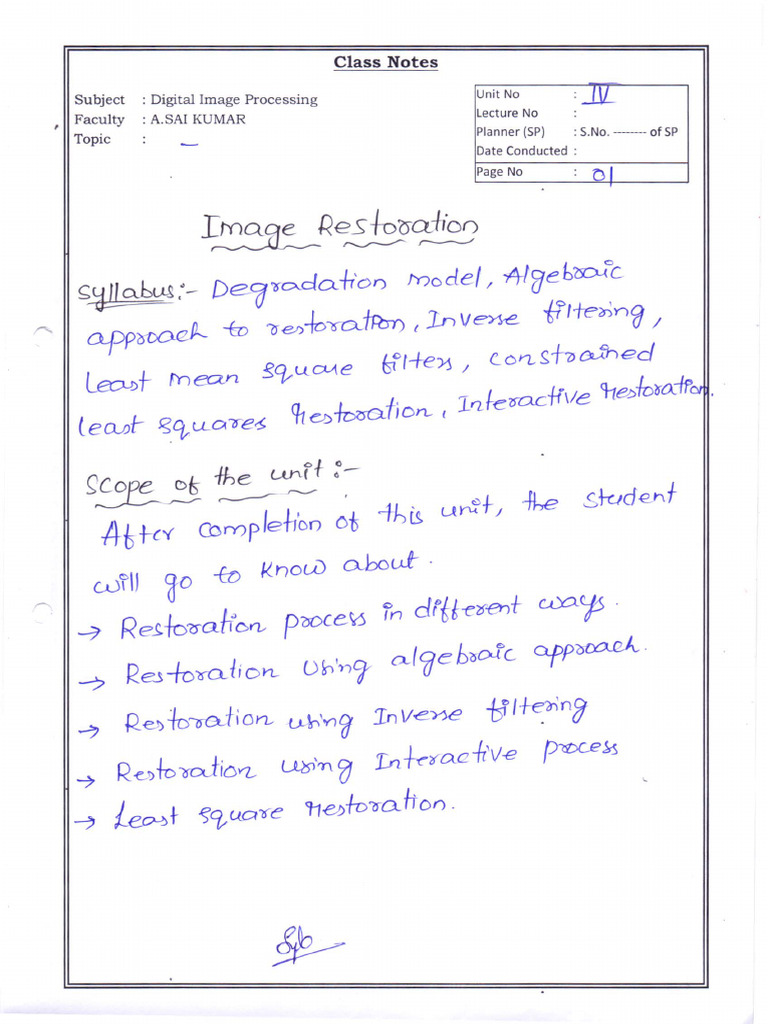 Class Notes
Subject : Digital Image Processing
Faculty : A.SAI KUMAR
Topic : –
Unit No : IV
Lecture No :
Planner (SP) : S.No. -------- of SP
Date Conducted :
Page No : 01
Image Restoration
Syllabus:- Degradation model, Algebraic
approach to restoration, Inverse filtering,
Least mean square filters, constrained
least squares restoration, Interactive restoration.
Scope of the unit:-
After completion of this unit, the student
will go to know about.
→ Restoration process in different ways.
→ Restoration using algebraic approach.
→ Restoration using Inverse filtering
→ Restoration using Interactive process
→ Least square restoration.